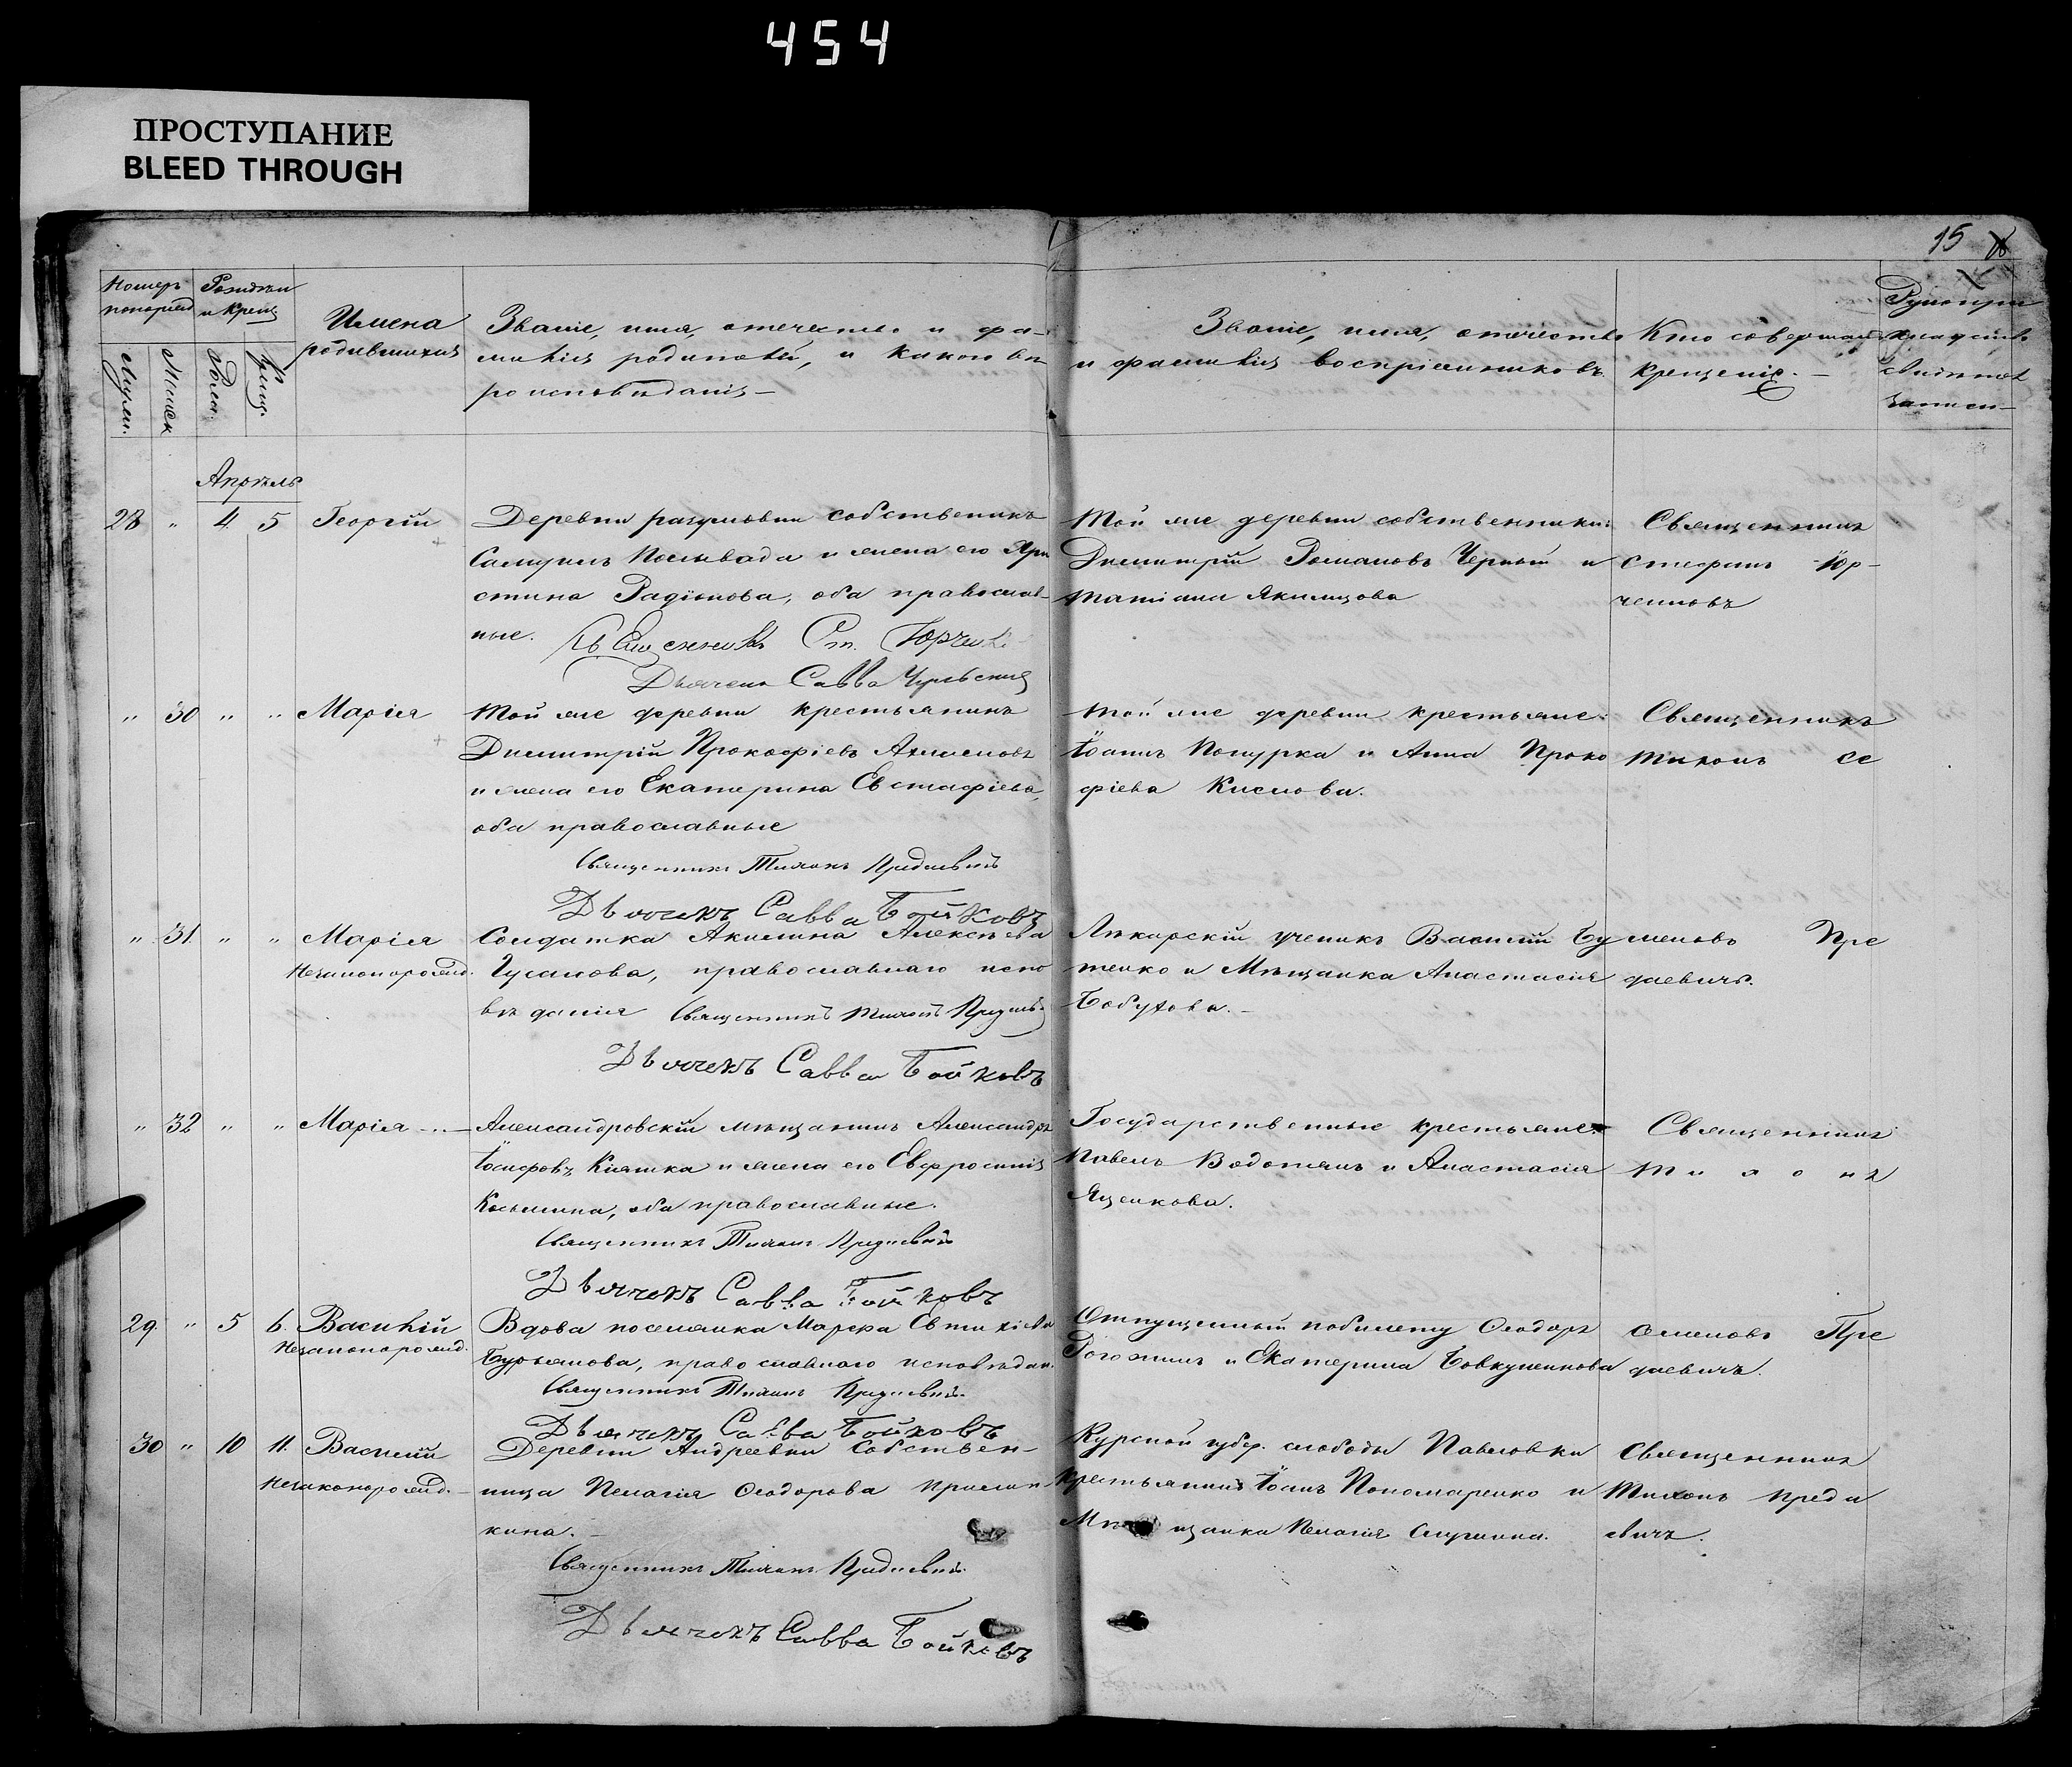 454
ПРОСТУПАНИЕ
BLEED THROUGH
15
Номеръ
Рожденія
и Крещ.
Имена
родившихся
Званіе, имя, отечество и фа-
милія родителей, и какого вѣ-
роисповѣданія —
Званіе, имя, отечество
и фамилія воспріемниковъ.
Кто совершалъ
крещеніе. —
записи
Мужск.
Женск.
Апрѣль
28 " 4. 5 Георгій
Деревни разумовки собственникъ
и жена его Хри
стина Радіонова, оба православ-
ные. Священникъ Ст. Юрченко
Дьячекъ Савва
Той же деревни собственники:
Димитрій Романовъ Черный и
Татіана Якимцова
Священникъ
Стефанъ Юр-
ченковъ
" 30 " " Марія
Той же деревни крестьянинъ
Димитрій Прокофіевъ
и жена его Екатерина Евстафіева,
оба православные
Священникъ Тихонъ Предаевичъ
Дьячекъ Савва Бойковъ
Той же деревни крестьяне:
Іоаннъ и Анна Проко
фіева Кислова.
Священникъ
Тихонъ Се
" 31. " " Марія
Незаконорожд.
Солдатка Акилина Алексѣева
Чусанова, православнаго испо
вѣданія Священникъ Тихонъ
Дьячекъ Савва Бойковъ
Лѣкарскій ученикъ Василій Бу
тенко и Мѣщанка Анастасія
меновъ Пре
даевичъ.
" 32 " " Марія —..—
Александровскій мѣщанинъ Александръ
Іосифовъ Кияшка и жена его Евфросинія
Косьмина, оба православные.
Священникъ Тихонъ Предаевичъ
Дьячекъ Савва Бойковъ
Государственные крестьяне:
Павелъ и Анастасія
Яценкова.
Священникъ
Тихонъ
29. " 5 6. Василій
Незаконорожд.
Вдова поселянка Марфа
Бурьянова, православнаго исповѣдан.
Священникъ Тихонъ Предаевичъ.
Дьячекъ Савва Бойковъ
Отпущенный по билету Ѳеодоръ
Рогожинъ и Екатерина
Семеновъ Пре
даевичъ.
30 " 10 11. Василій
Незаконорожд. —
Деревни Андреевки Собствен-
ница Пелагія Ѳеодорова
кина. —
Священникъ Тихонъ Предаевичъ.
Дьячекъ Савва Бойковъ
Курской губер. слободы Павловки
крестьянинъ Іоаннъ Пономаренко и
Мѣщанка Пелагія
Священникъ
Тихонъ Преда
евичъ.